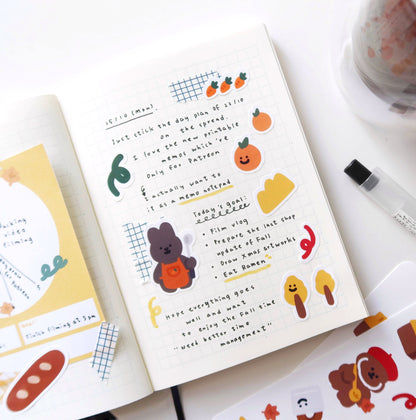 25/10 (mon).
Just stick the day plan of 25/10
on the spread.
I love the new printable
memos which 're
only for Patreon
I actually want to
it as a memo notepad
Today's goal:
• Film vlog
• Prepare the last shop
update of Fall
• Draw Xmas artworks
• Eat Ramen
Hope everything goes
well and want
to enjoy the fall time
"Need better time
management"
filming
Finish filming at 5pm